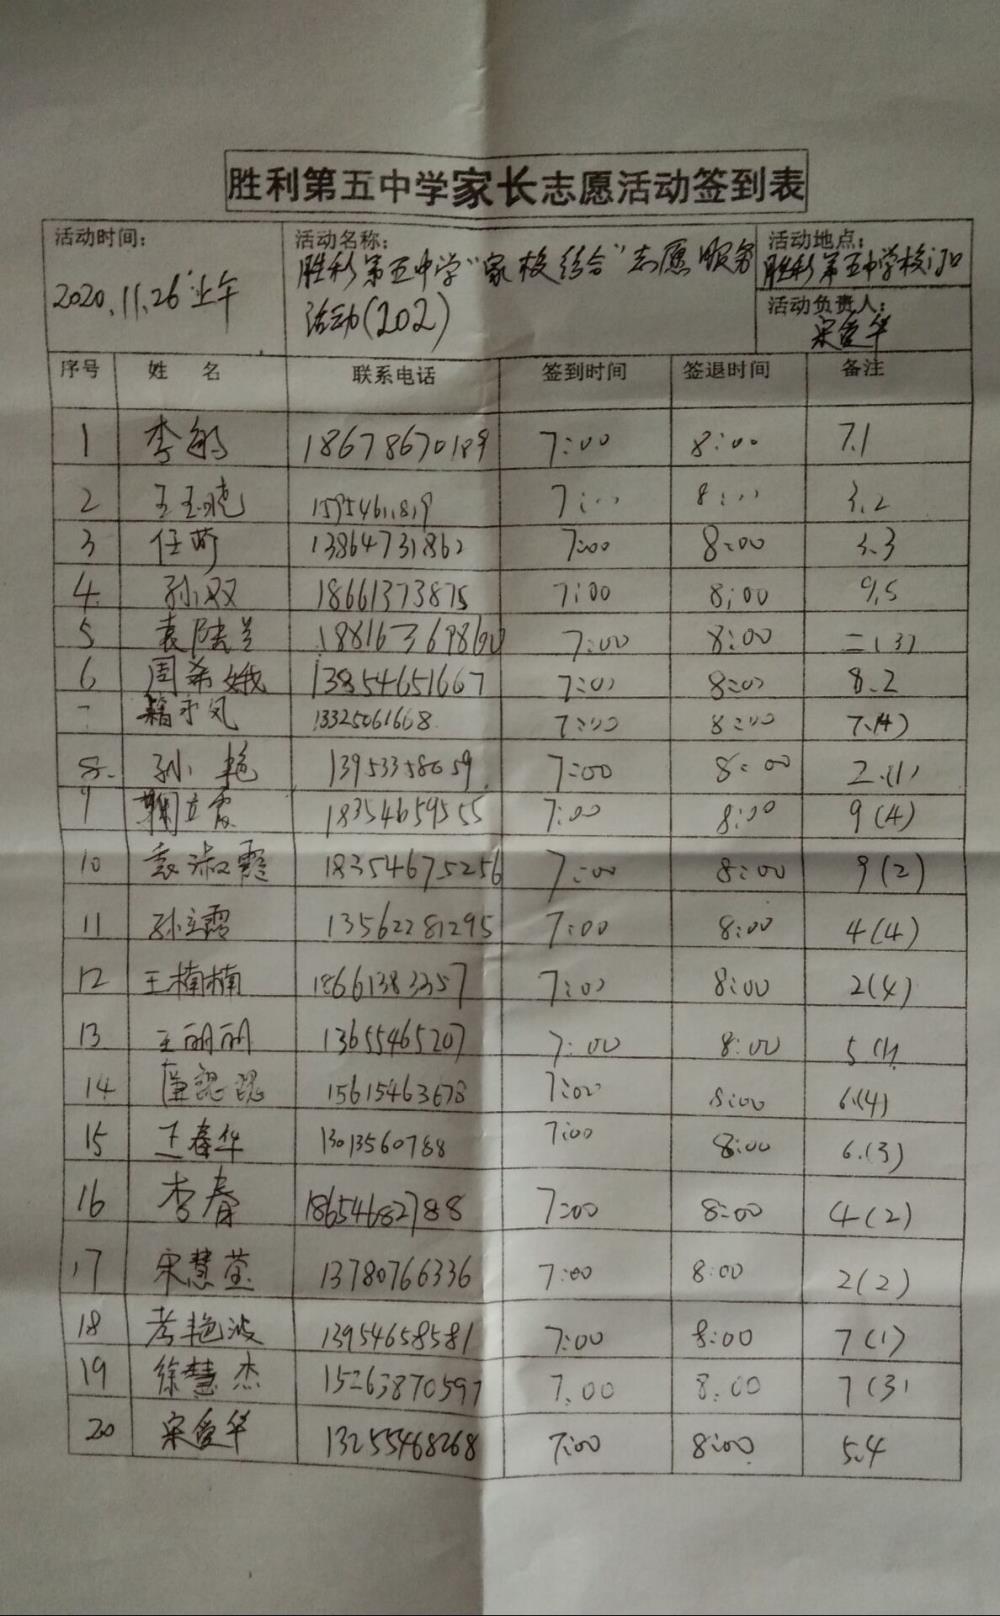 胜利第五中学家长志愿活动签到表
活动时间：
2020.11.26上午
活动名称：
胜利第五中学“家校结合”志愿服务
活动(202)
活动地点：
胜利第五中学校门口
活动负责人：
宋爱华
序号 姓 名 联系电话 签到时间 签退时间 备注
1 李敏 18678670189 7:00 8:00 7.1
2 王玉晓 7:00 8:00 3.2
3 任萌 13864731862 7:00 8:00 3.3
4 孙双 18661373875 7:00 8:00 9.5
5 8:00 二(3)
6 周希娥 13854651667 7:00 8:00 8.2
13325061668 7:00 8:00 7.(4)
8 孙艳 13953358059 7:00 8:00 2.(1)
9 18354659555 7:00 8:00 9(4)
10 袁淑霞 18354675256 7:00 8:00 9(2)
11 孙立霞 13562281295 7:00 8:00 4(4)
12 王楠楠 18661383357 7:00 8:00 2(4)
13 王丽丽 13655465207 7:00 8:00 5(1)
14 15615463678 7:00 8:00 6.(4)
15 王春华 13013560788 7:00 8:00 6.(3)
16 李春 18654682788 7:00 8:00 4(2)
17 宋慧莹 13780766336 7:00 8:00 2(2)
18 考艳波 13954658581 7:00 8:00 7(1)
19 徐慧杰 15263870597 7.00 8.00 7(3)
20 宋爱华 13255468268 7:00 8:00 5.4